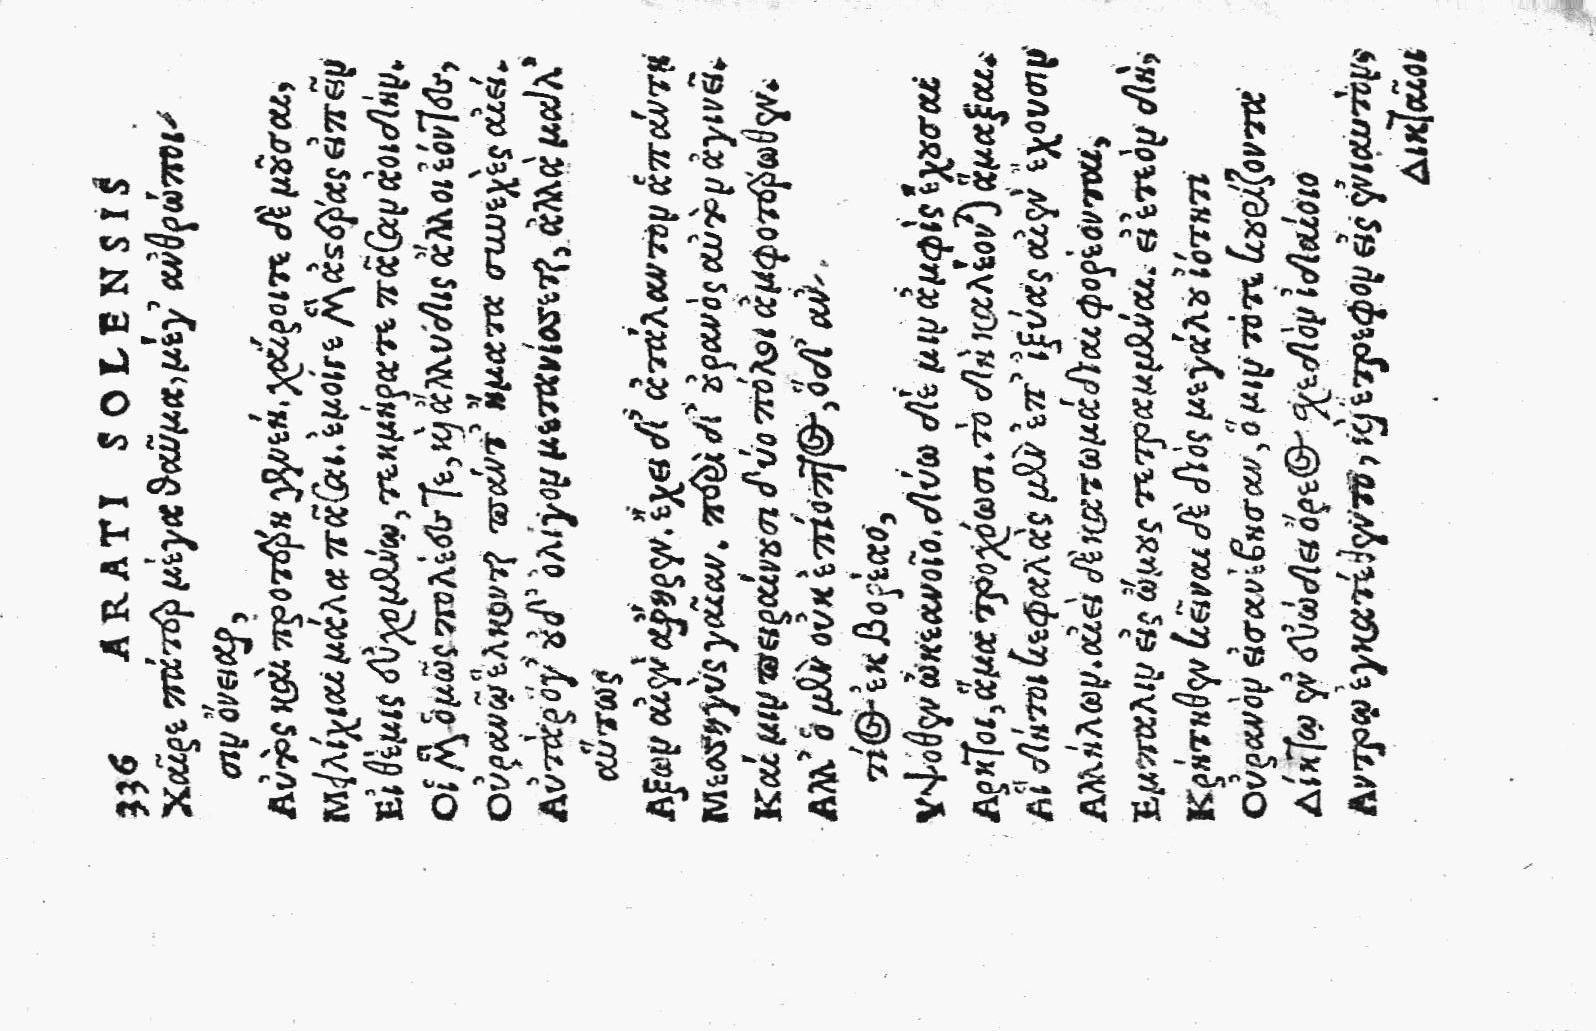 336 ARATI SOLENSIS
Χαῖρε πάτερ μέγα θαῦμα, μέγ' ἀνθρώποι-
σιν ὄνειαρ,
Αὐτὸς καὶ προτέρη γενεή. χαίροιτε δὲ μοῦσαι,
Μειλίχιαι μάλα πᾶσαι. ἐμοί γε μὲν ἀστέρας εἰπεῖν
Εἰ θέμις εὐχομένῳ, τεκμήρατε πᾶσαν ἀοιδήν.
Οἱ μὲν ὁμῶς πολέες τε, καὶ ἄλλυδις ἄλλοι ἐόντες,
Οὐρανῷ ἕλκονται πάντ' ἤματα συνεχὲς αἰεί.
Αὐτὰρ ὅγ' οὐδ' ὀλίγον μετανίσσεται, ἀλλὰ μάλ'
αὕτως
Αξων αἰὲν ἄρηρεν. ἔχει δ' ἀτάλαντον ἁπάντη
Μεσσηγὺς γαῖαν. περὶ δ' οὐρανὸς αὐτὸν ἀγινεῖ.
Καί μιν πειραίνουσι δύο πόλοι ἀμφοτέρωθεν.
Αλλ' ὁ μὲν οὐκ ἐπίοπτος, ὁ δ' ἀν-
τίος ἐκ βορέαο,
Υψόθεν ὠκεανοῖο. δύω δέ μιν ἀμφὶς ἔχουσαι
Αρκτοι, ἅμα τροχόωσι. τὸ δὴ καλέονται ἅμαξαι.
Αἵ δήτοι κεφαλὰς μὲν ἐπ' ἰξύας αἰὲν ἔχουσιν
Αλλήλων. αἰεὶ δὲ κατωμάδιαι φορέονται,
Εμπαλιν εἰς ὤμους τετραμμέναι. εἰ ἐτεὸν δὴ,
Κρήτηθεν κεῖναι δὲ διὸς μεγάλου ἰότητι
Οὐρανὸν εἰσανέβησαν, ὅ μιν τότε κουρίζοντα
Δίκτῳ ἐν εὐώδει ὄρεος χεδὸν ἰδαίοιο
Αντρῳ ἐγκατέθεντο, καὶ ἔτρεφον εἰς ἐνιαυτὸν,
Δικταῖοι